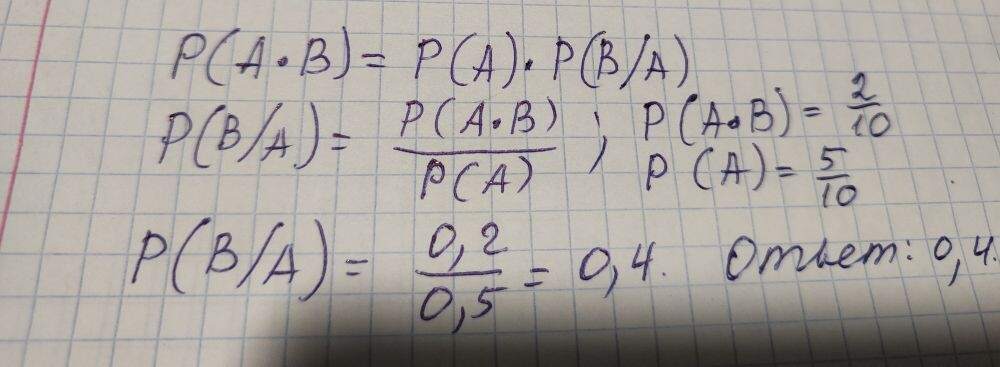 P(A·B) = P(A)·P(B/A)
P(B/A) = P(A·B)/P(A) ; P(A·B) = 2/10
P(A) = 5/10
P(B/A) = 0,2/0,5 = 0,4. Ответ: 0,4.